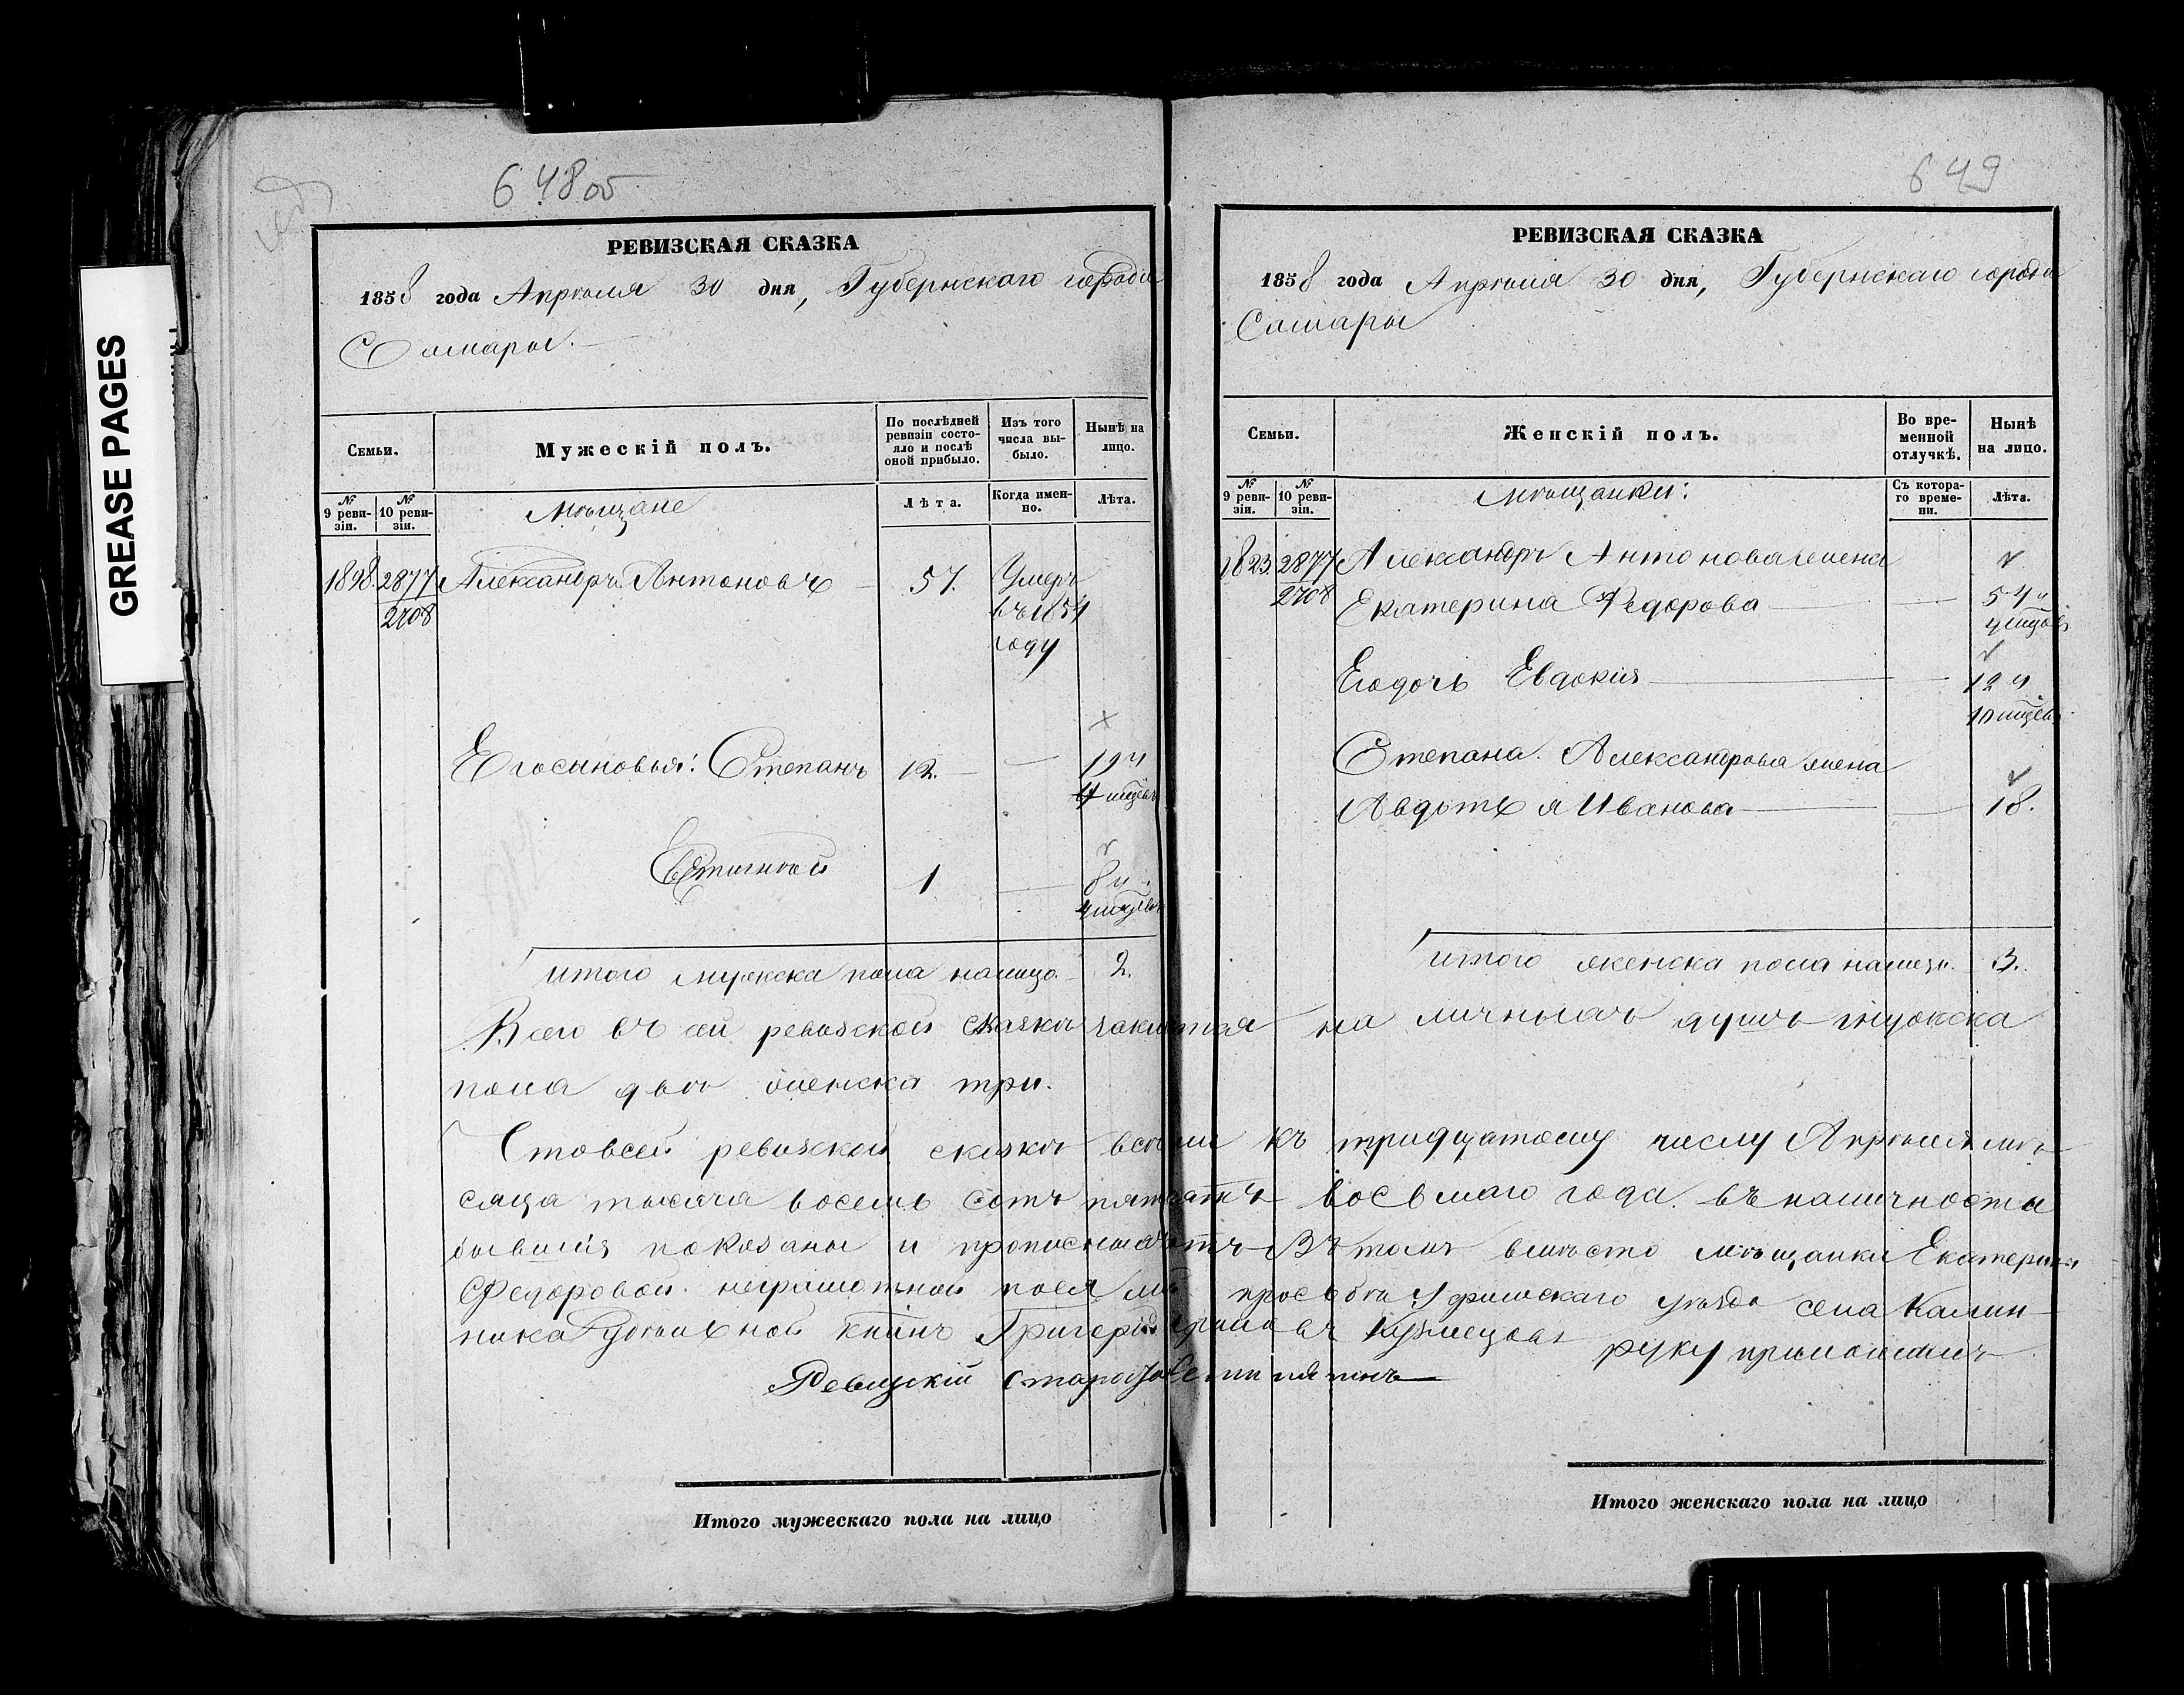 GREASE PAGES
648об
РЕВИЗСКАЯ СКАЗКА
1858 года Апрѣля 30 дня, Губернскаго города
Самары.
Семьи.
Мужескій полъ.
По послѣдней ревизіи состояло и послѣ оной прибыло.
Изъ того числа выбыло.
Нынѣ на лицо.
№ 9 ревизіи.
№ 10 ревизіи.
Мѣщане
Лѣта.
Когда именно.
Лѣта.
1898. 2877 Александръ Антоновъ 57. Умеръ
2708 въ 1854
году
Его сыновья: Степанъ 12. 19 и
4 мѣсѣв
Евтигнѣй 1 8 и
4 мѣсѣв
итого мужеска пола налицо 2.
649
РЕВИЗСКАЯ СКАЗКА
1858 года Апрѣля 30 дня, Губернскаго города
Самары
Семьи.
Женскій полъ.
Во временной отлучкѣ.
Нынѣ на лицо.
№ 9 ревизіи.
№ 10 ревизіи.
Мѣщанки:
Съ котораго времени.
Лѣта.
1823. 2877 Александръ Антонова жена
2708 Екатерина Федорова 54 и
Его дочь Евдокия 12 и
Степана Александрова жена
Авдотья Иванова 18.
итого женска пола налицо 3.
Всего въ сей ревизской сказкѣ заключая на личныхъ душъ мужска
пола двѣ женска три.
Что въ сей ревизской сказкѣ всѣ къ тридцатому числу Апрѣля мѣ-
сяца тысяча восемь сотъ пятдятъ восьмаго года въ наличности
бывшия показаны и въ томъ вмѣсто мѣщанки Екатерины
Федоровой неграмотной по ея просьбѣ Уфимскаго уѣзда села Калин-
ника Григорій Кузнецовъ руку приложилъ
Ревизскій староста
Итого мужескаго пола на лицо
Итого женскаго пола на лицо